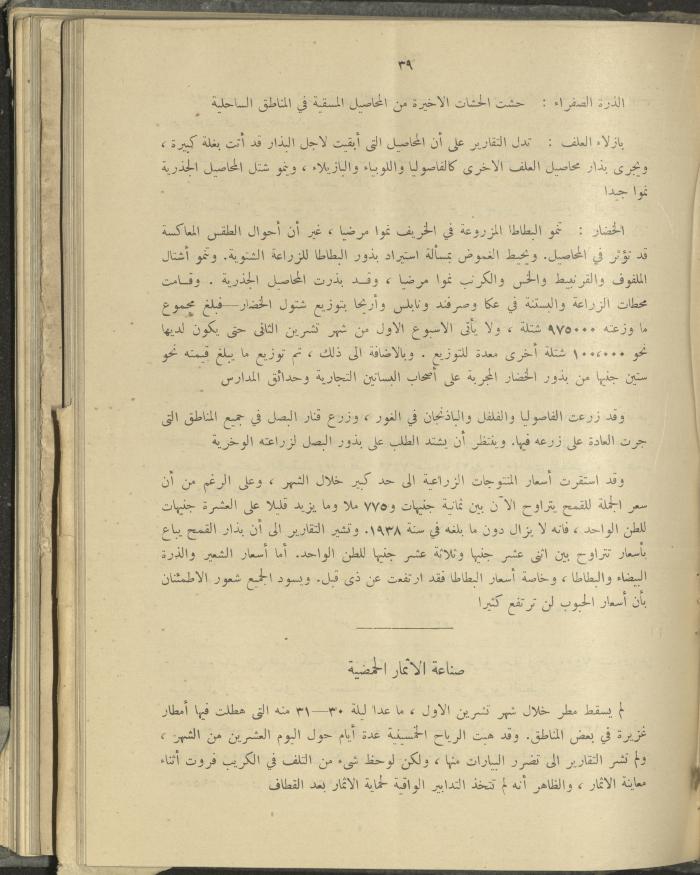 ٣٩
الذرة الصفراء : حشت الحشات الاخيرة من المحاصيل المسقية في المناطق الساحلية
بازلاء العلف : تدل التقارير على أن المحاصيل التى أبقيت لاجل البذار قد أتت بغلة كبيرة ،
ويجرى بذار محاصيل العلف الاخرى كالفاصوليا واللوبياء والبازيلاء ، وينمو شتل المحاصيل الجذرية
نموا جيدا
الخضار : تنمو البطاطا المزروعة في الخريف نموا مرضيا ، غير أن أحوال الطقس المعاكسة
قد تؤثر في المحاصيل. ويحيط الغموض بمسألة استيراد بذور البطاطا للزراعة الشتوية. وتنمو أشتال
الملفوف والقرنبيط والخس والكرنب نموا مرضيا ، وقد بذرت المحاصيل الجذرية . وقامت
محطات الزراعة والبستنة في عكا وصرفند ونابلس وأريحا بتوزيع شتول الخضار—فبلغ مجموع
ما وزعته ٩٧٥٠٠٠ شتلة ، ولا يأتى الاسبوع الاول من شهر تشرين الثانى حتى يكون لديها
نحو ١٠٠،٠٠٠ شتلة أخرى معدة للتوزيع . وبالاضافة الى ذلك ، تم توزيع ما يبلغ قيمته نحو
ستين جنيها من بذور الخضار المجربة على أصحاب البساتين التجارية وحدائق المدارس
وقد زرعت الفاصوليا والفلفل والباذنجان في الغور ، وزرع قنار البصل في جميع المناطق التى
جرت العادة على زرعه فيها. وينتظر أن يشتد الطلب على بذور البصل لزراعته الوخرية
وقد استقرت أسعار المنتوجات الزراعية الى حد كبير خلال الشهر ، وعلى الرغم من أن
سعر الجملة للقمح يتراوح الآن بين ثمانية جنيهات و٧٧٥ ملا وما يزيد قليلا على العشرة جنيهات
للطن الواحد ، فانه لا يزال دون ما بلغه في سنة ١٩٣٨. وتشير التقارير الى أن بذار القمح يباع
بأسعار تتراوح بين اثنى عشر جنيها وثلاثة عشر جنيها للطن الواحد. أما أسعار الشعير والذرة
البيضاء والبطاطا ، وخاصة أسعار البطاطا فقد ارتفعت عن ذى قبل. ويسود الجميع شعور الاطمئنان
بأن أسعار الحبوب لن ترتفع كثيرا
صناعة الاثمار الحمضية
لم يسقط مطر خلال شهر تشرين الاول ، ما عدا ليلة ٣٠—٣١ منه التى هطلت فيها أمطار
غزيرة في بعض المناطق. وقد هبت الرياح الخمسينية عدة أيام حول اليوم العشرين من الشهر ،
ولم تشر التقارير الى تضرر البيارات منها ، ولكن لوحظ شىء من التلف في الكريب فروت أثناء
معاينة الاثمار ، والظاهر أنه لم تتخذ التدابير الواقية لحماية الاثمار بعد القطاف